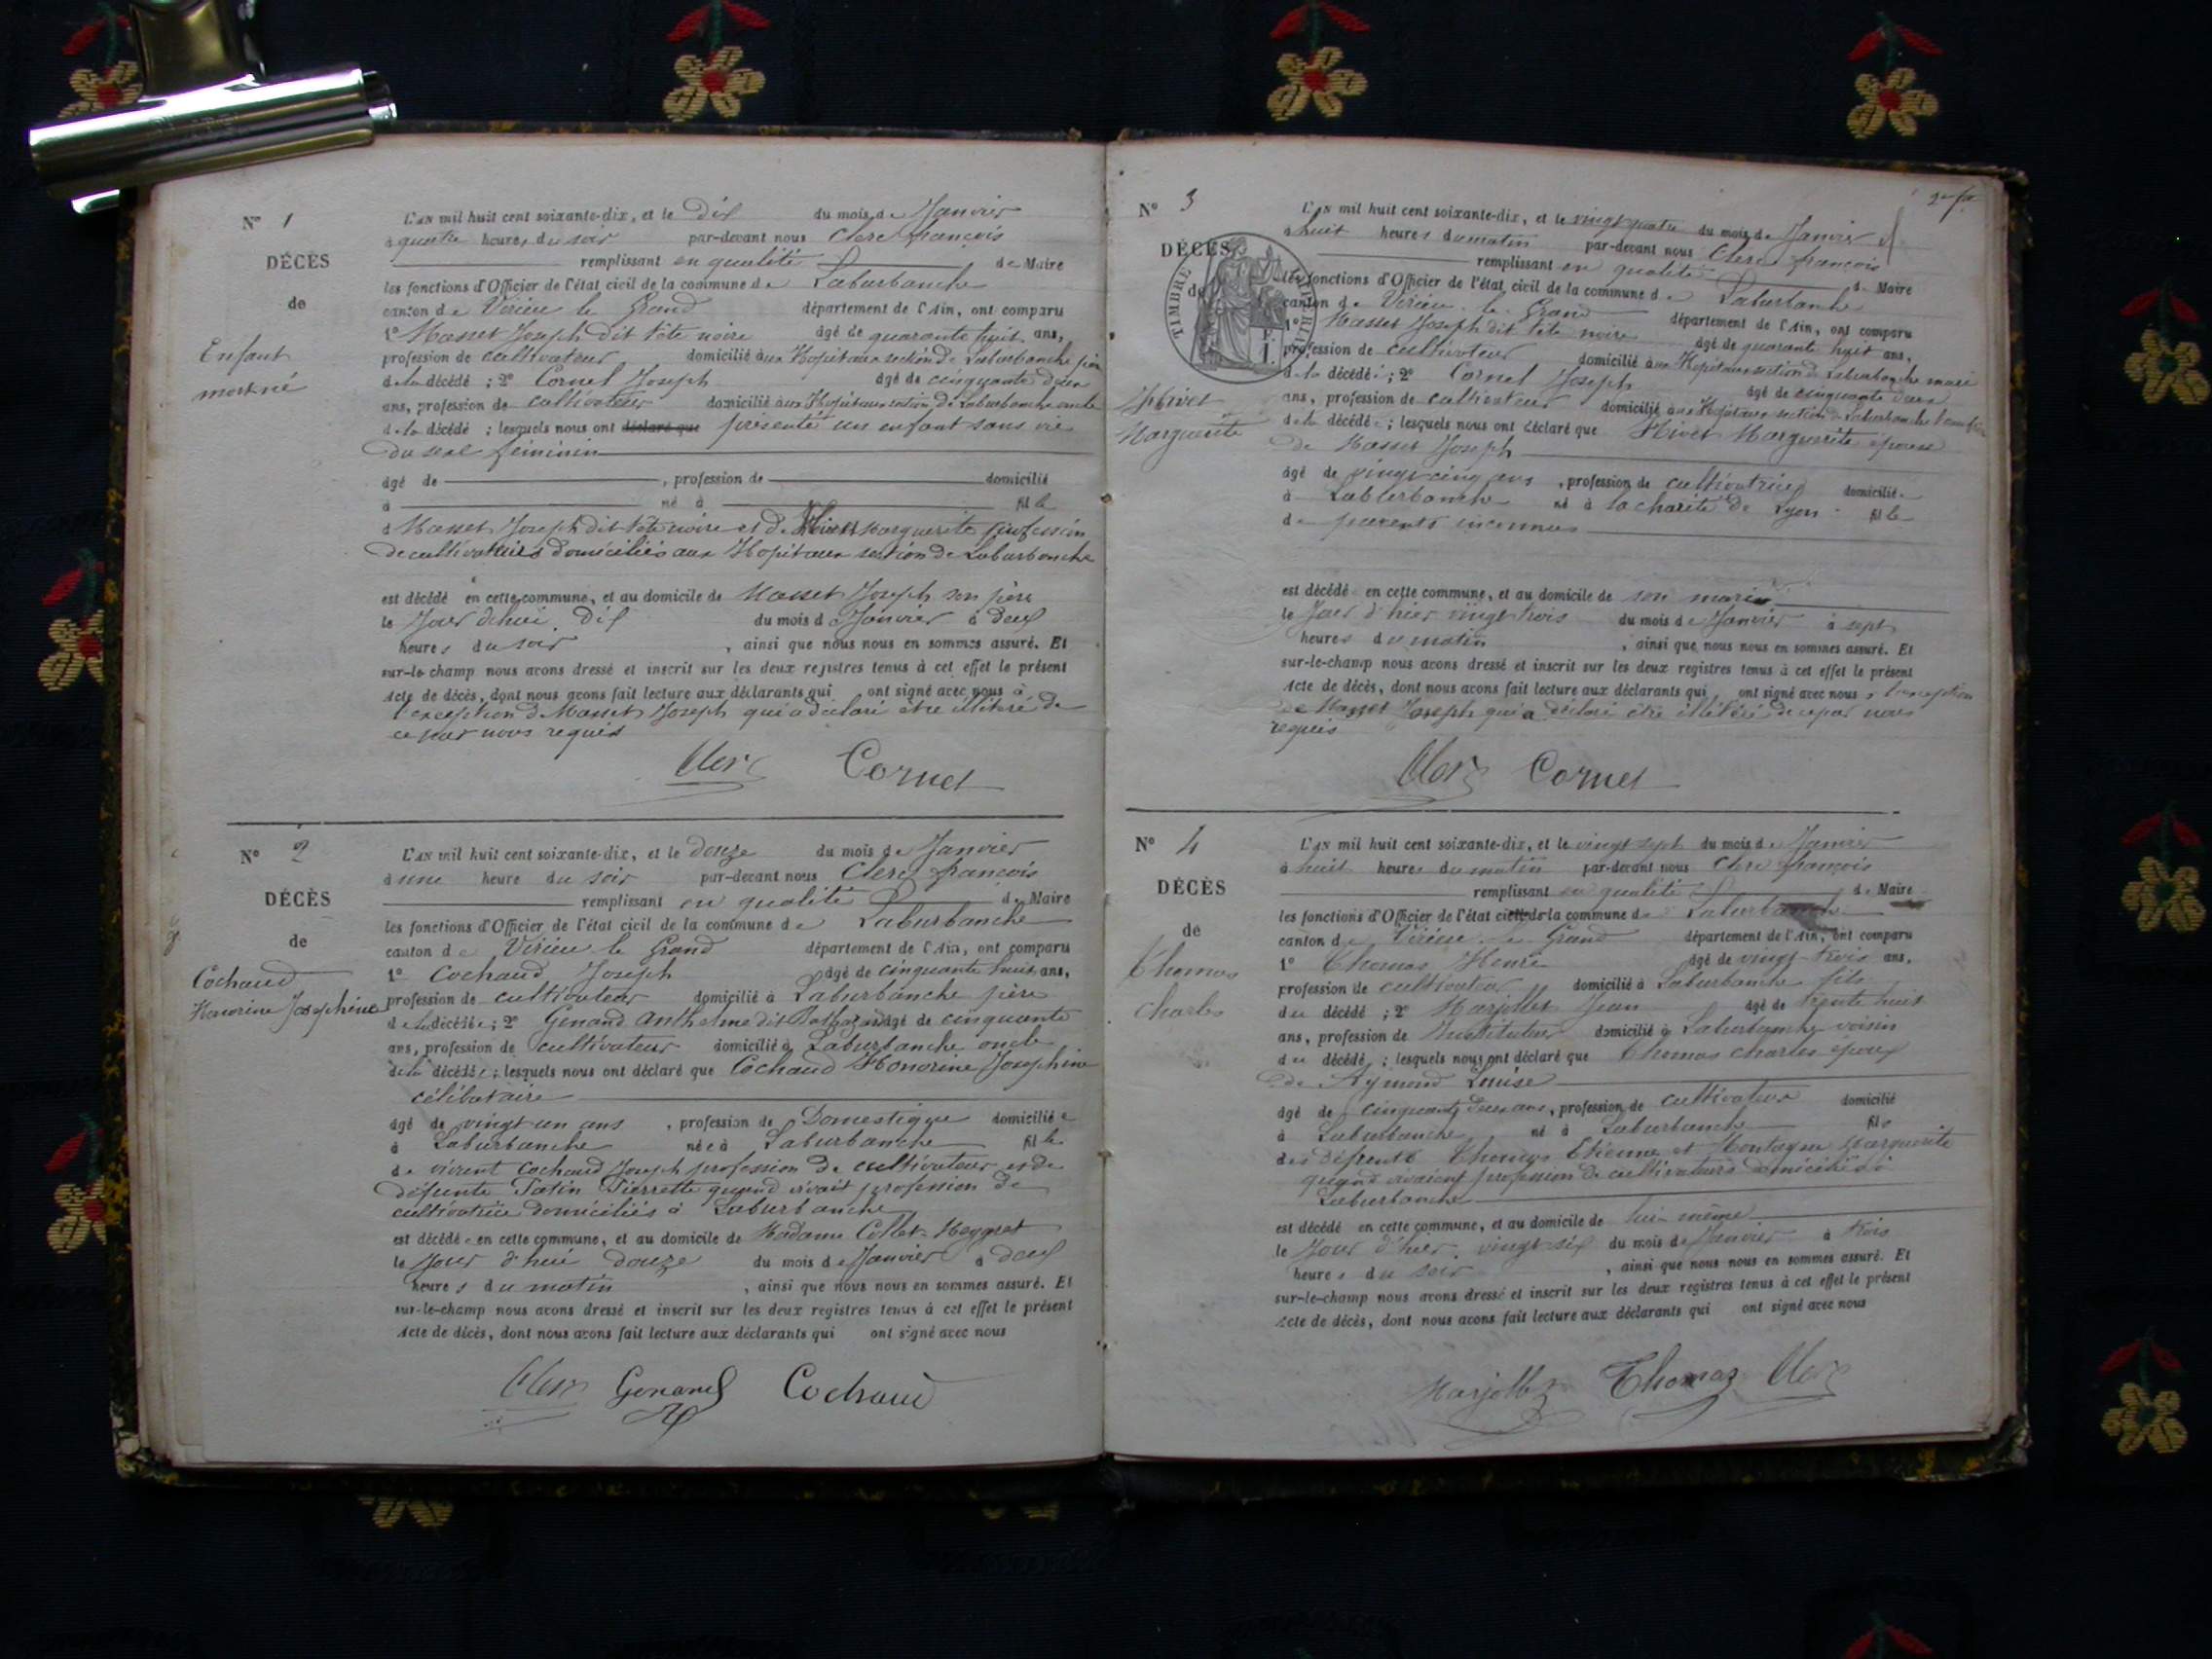 N° 1
DÉCÈS
de
Enfant
mort né
L'AN mil huit cent soixante-dix, et le dix du mois de Janvier
à quatre heures du soir par-devant nous Clerc françois
remplissant en qualité de Maire
les fonctions d'Officier de l'état civil de la commune de Laburbanche
canton de Virieu le Grand département de l'Ain, ont comparu
1° Masset Joseph dit tête noire âgé de quarante huit ans,
profession de cultivateur domicilié aux Hopitaux section de Laburbanche père
de la décédé ; 2° Cornet Joseph âgé de cinquante deux
ans, profession de cultivateur domicilié aux Hopitaux section de Laburbanche oncle
de la décédé ; lesquels nous ont déclaré que présenté un enfant sans vie
du sexe féminin
âgé de , profession de domicilié
à né à fille
d Masset Joseph dit tête noire et de Hivet Marguerite profession
de cultivateurs domiciliés aux Hopitaux section de Laburbanche
est décédé en cette commune, et au domicile de Masset Joseph son père
le Jour d'hui dix du mois de Janvier à deux
heures du soir , ainsi que nous nous en sommes assuré. Et
sur-le-champ nous avons dressé et inscrit sur les deux registres tenus à cet effet le présent
Acte de décès, dont nous avons fait lecture aux déclarants qui ont signé avec nous à
l'exception de Masset Joseph qui a déclaré être illitéré de
ce par nous requis
Clerc Cornet
N° 2
DÉCÈS
de
Cochaud
Honorine Josephine
L'AN mil huit cent soixante-dix, et le douze du mois de Janvier
à une heure du soir par-devant nous Clerc françois
remplissant en qualité de Maire
les fonctions d'Officier de l'état civil de la commune de Laburbanche
canton de Virieu le Grand département de l'Ain, ont comparu
1° Cochaud Joseph âgé de cinquante huit ans,
profession de cultivateur domicilié à Laburbanche père
de la décédée ; 2° Genand Anthelme dit Balthazard âgé de cinquante
ans, profession de cultivateur domicilié à Laburbanche oncle
de la décédée ; lesquels nous ont déclaré que Cochaud Honorine Josephine
célibataire
âgé de vingt un ans , profession de Domestique domiciliée
à Laburbanche née à Laburbanche fille
de vivent Cochaud Joseph profession de cultivateur et de
défunte Tatin Pierrette quand vivait profession de
cultivatrice domiciliés à Laburbanche
est décédée en cette commune, et au domicile de Madame Collet-Meygret
le Jour d'hui douze du mois de Janvier à deux
heures du matin , ainsi que nous nous en sommes assuré. Et
sur-le-champ nous avons dressé et inscrit sur les deux registres tenus à cet effet le présent
Acte de décès, dont nous avons fait lecture aux déclarants qui ont signé avec nous
Clerc Genand Cochaud
N° 3
DÉCÈS
de
TIMBRE IMPÉRIAL
Hivet
Marguerite
L'AN mil huit cent soixante-dix, et le vingt quatre du mois de Janvier
à huit heures du matin par-devant nous Clerc françois
remplissant en qualité de Maire
les fonctions d'Officier de l'état civil de la commune de Laburbanche
canton de Virieu le Grand département de l'Ain, ont comparu
1° Masset Joseph dit tête noire âgé de quarante huit ans,
profession de cultivateur domicilié aux Hopitaux section de Laburbanche mari
de la décédée ; 2° Cornet Joseph âgé de cinquante deux
ans, profession de cultivateur domicilié aux Hopitaux section de Laburbanche
de la décédée ; lesquels nous ont déclaré que Hivet Marguerite épouse
de Masset Joseph
âgé de vingt cinq ans , profession de cultivatrice domicilié
à Laburbanche né à la charité de Lyon fille
de parents inconnus
est décédé en cette commune, et au domicile de son mari
le Jour d'hier vingt trois du mois de Janvier à sept
heures du matin , ainsi que nous nous en sommes assuré. Et
sur-le-champ nous avons dressé et inscrit sur les deux registres tenus à cet effet le présent
Acte de décès, dont nous avons fait lecture aux déclarants qui ont signé avec nous à l'exception
de Masset Joseph qui a déclaré être illitéré de ce par nous
requis
Clerc Cornet
N° 4
DÉCÈS
de
Thomas
Charles
L'AN mil huit cent soixante-dix, et le vingt sept du mois de Janvier
à huit heures du matin par-devant nous Clerc françois
remplissant en qualité de Maire
les fonctions d'Officier de l'état civil de la commune de Laburbanche
canton de Virieu le Grand département de l'Ain, ont comparu
1° Thomas Henri âgé de vingt-trois ans,
profession de cultivateur domicilié à Laburbanche fils
du décédé ; 2° Marjollet Jean âgé de trente huit
ans, profession de Instituteur domicilié à Laburbanche voisin
du décédé ; lesquels nous ont déclaré que Thomas Charles époux
de Aymond Louise
âgé de cinquante deux ans, profession de cultivateur domicilié
à Laburbanche né à Laburbanche fils
des défunts Thomas Etienne et Montagne Marguerite
quand vivaient profession de cultivateurs domiciliés à
Laburbanche
est décédé en cette commune, et au domicile de lui-même
le Jour d'hier vingt six du mois de Janvier à trois
heures du soir , ainsi que nous nous en sommes assuré. Et
sur-le-champ nous avons dressé et inscrit sur les deux registres tenus à cet effet le présent
Acte de décès, dont nous avons fait lecture aux déclarants qui ont signé avec nous
Marjollet Thomas Clerc